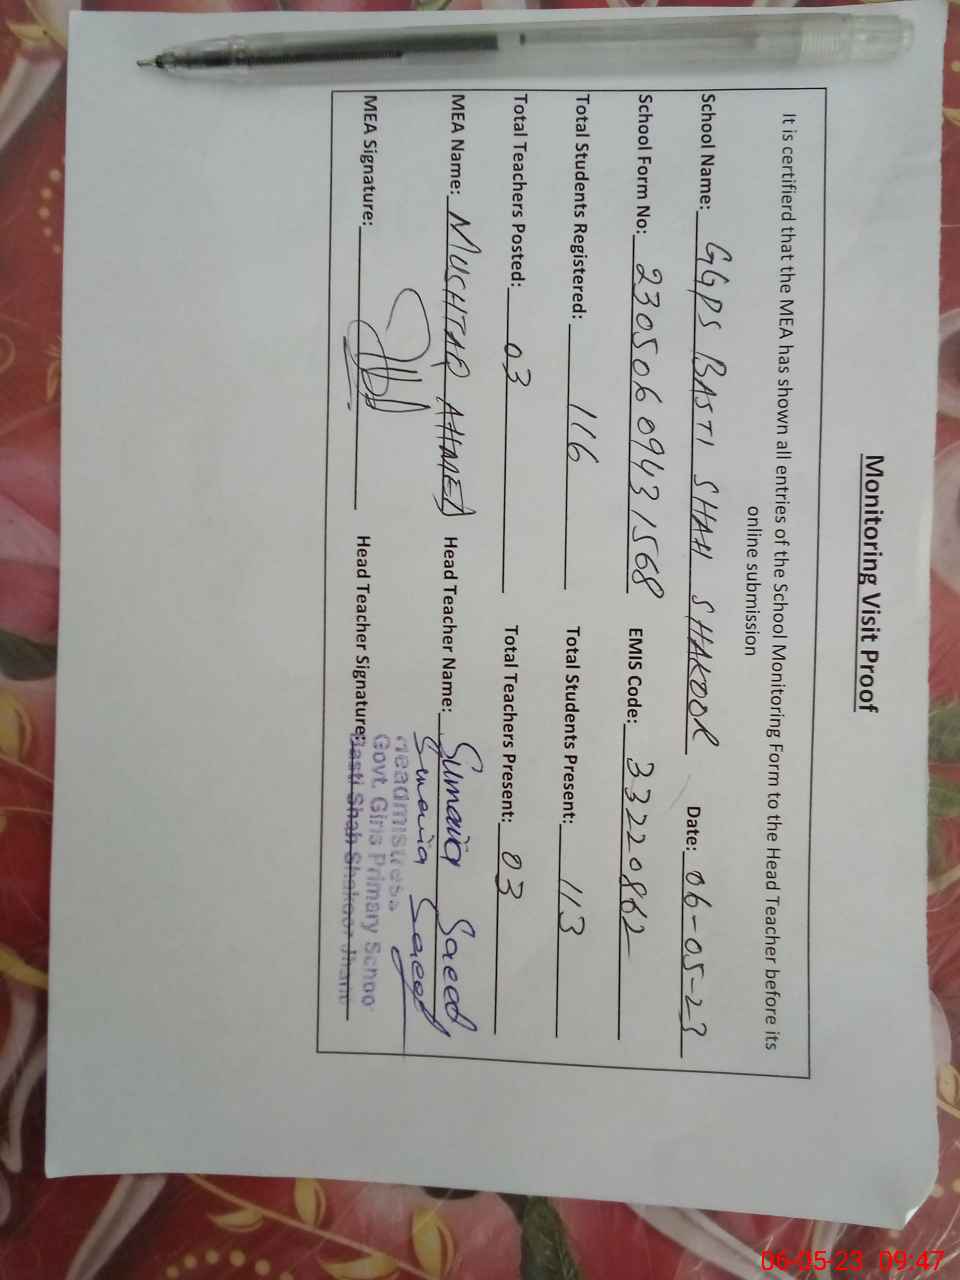 Monitoring Visit Proof
It is certifierd that the MEA has shown all entries of the School Monitoring Form to the Head Teacher before its
online submission
School Name: GGPS BASTI SHAH SHAKOOR Date: 06-05-23
School Form No: 23050609431568 EMIS Code: 33220862
Total Students Registered: 116 Total Students Present: 113
Total Teachers Posted: 03 Total Teachers Present: 03
MEA Name: MUSHTAQ AHMED Head Teacher Name: Sumaira Saeed
Sumaira Saeed
MEA Signature: Head Teacher Signature:
Headmistress
Govt. Girls Primary School
Basti Shah Shakoor Jhang
06-05-23 09:47